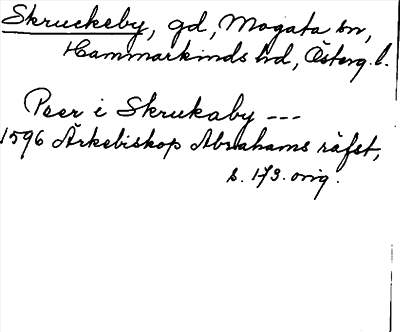 Skruckeby, gd, Mogata sn,
Hammarkinds hd, Österg. l.
Peer i Skrukaby ---
1596 Ärkebiskop Abrahams räfst,
s. 173. orig.